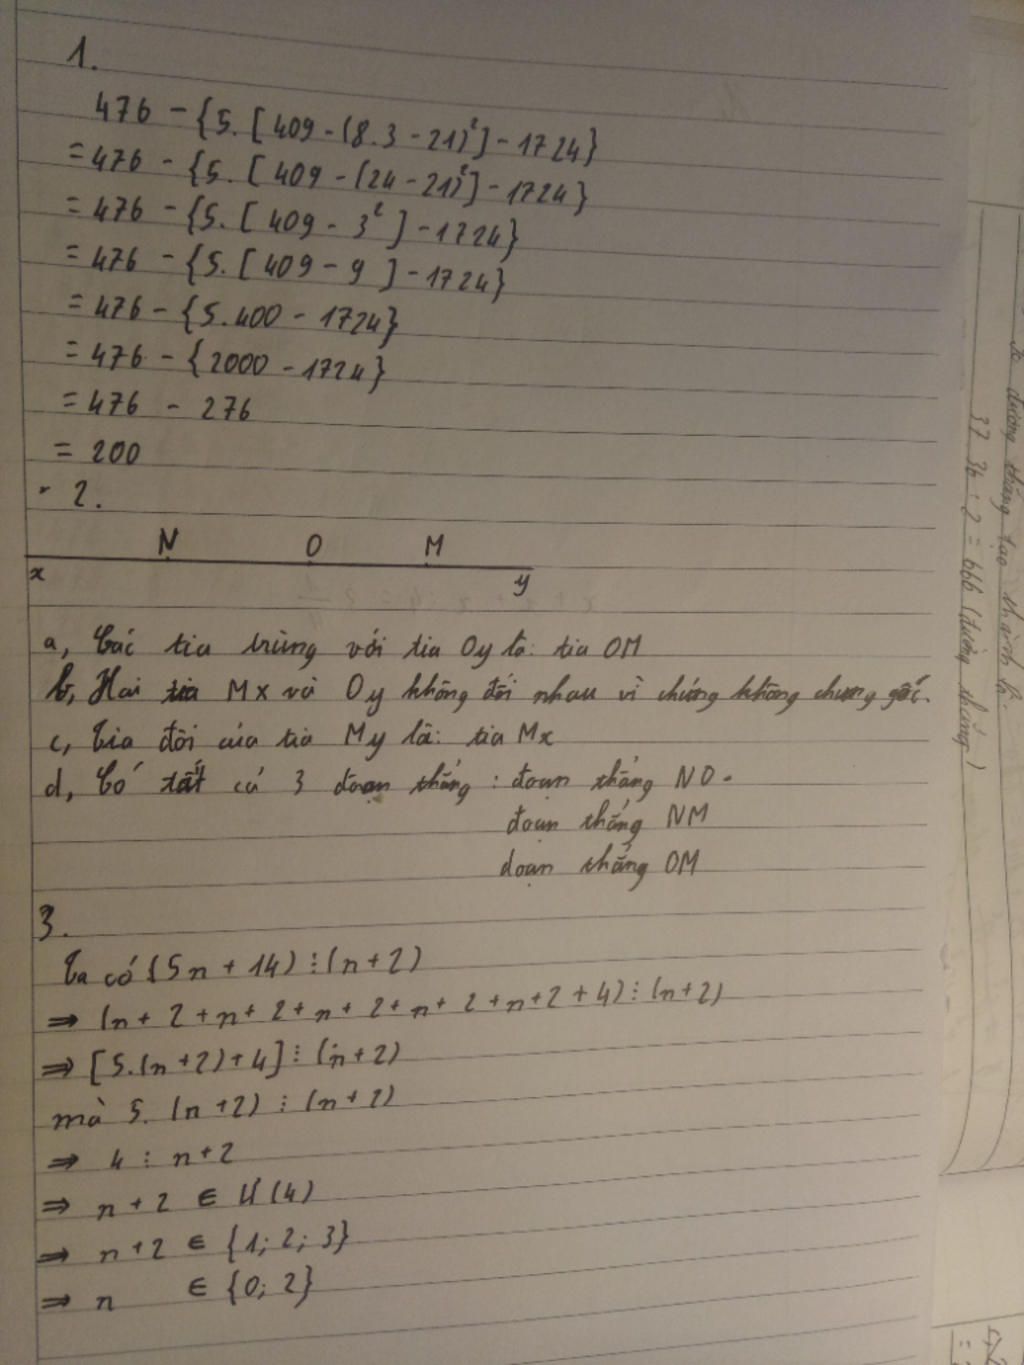 1.
476 - {5. [409 - (8.3 - 21)²] - 1724}
= 476 - {5. [409 - (24 - 21)²] - 1724}
= 476 - {5. [409 - 3²] - 1724}
= 476 - {5. [409 - 9] - 1724}
= 476 - {5.400 - 1724}
= 476 - {2000 - 1724}
= 476 - 276
= 200
2.
N O M
x y
a, Các tia trùng với tia Oy là: tia OM
b, Hai tia Mx và Oy không đối nhau vì chúng không chung gốc.
c, Tia đối của tia My là: tia Mx
d, Có tất cả 3 đoạn thẳng: đoạn thẳng NO.
đoạn thẳng NM
đoạn thẳng OM
3.
Ta có (5n + 14) ⋮ (n+2)
⇒ (n + 2 + n + 2 + n + 2 + n + 2 + n + 2 + 4) ⋮ (n+2)
⇒ [5.(n+2) + 4] ⋮ (n+2)
mà 5. (n+2) ⋮ (n+2)
⇒ 4 ⋮ n+2
⇒ n + 2 ∈ Ư(4)
⇒ n+2 ∈ {1; 2; 3}
⇒ n ∈ {0; 2}
đường thẳng tạo thành là:
37 36 : 2 = 666 (đường thẳng)